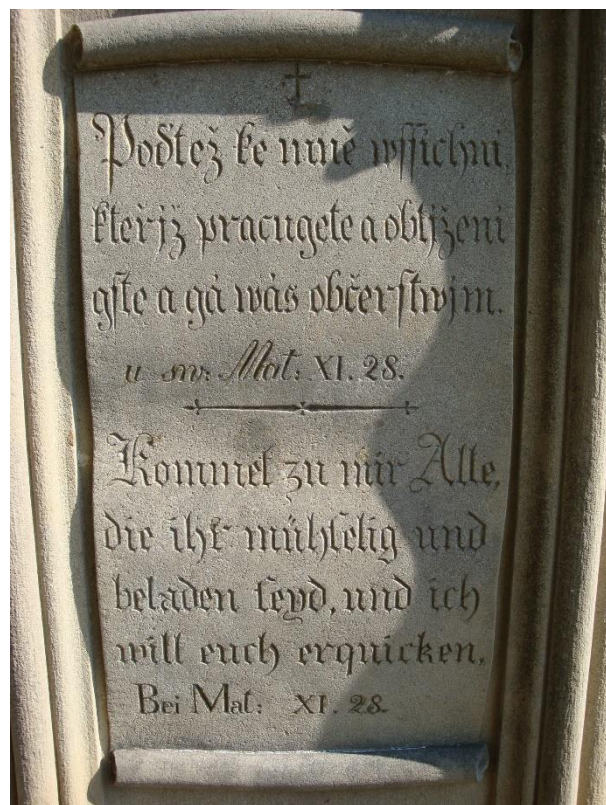 Poďtež ke mně wssichni,
kteřjž pracugete a obtjženi
gste a gá wás občerstwjm.
u sw: Mat: XI. 28.
Kommet zu mir Alle,
die ihr mühselig und
beladen seyd, und ich
will euch erquicken,
Bei Mat: XI. 28.